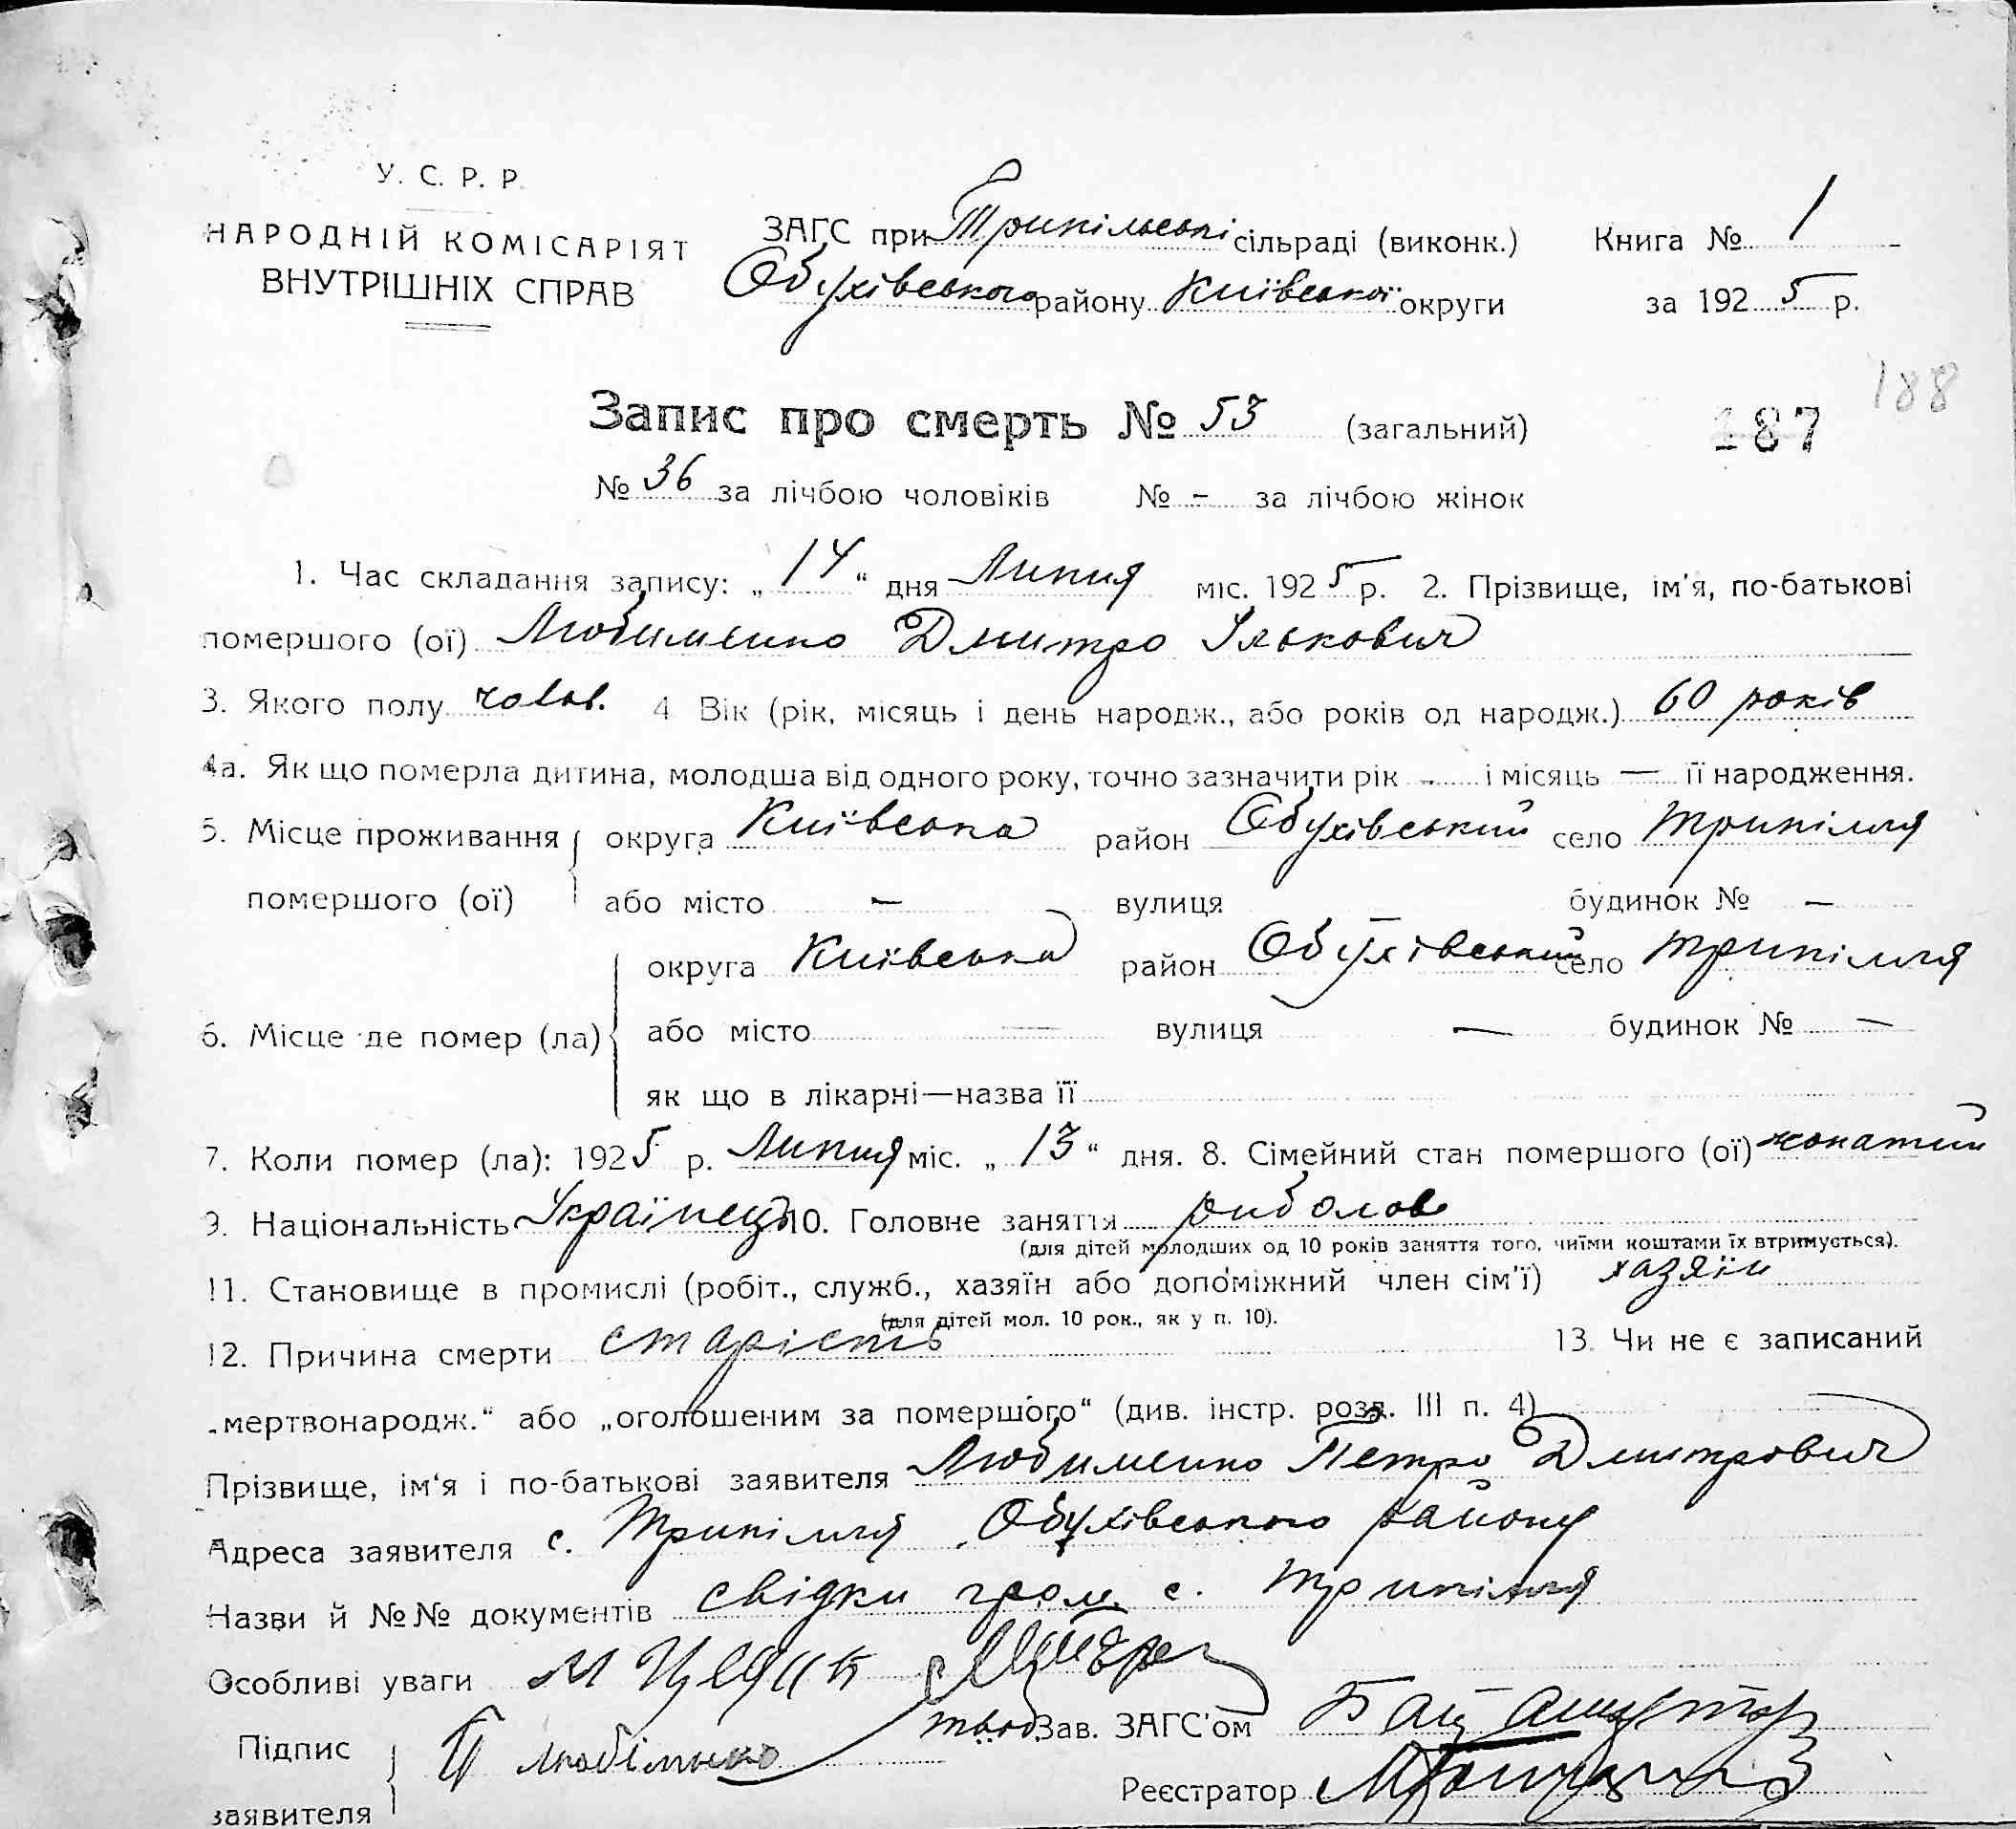 У. С. Р. Р.
НАРОДНІЙ КОМІСАРІЯТ
ВНУТРІШНІХ СПРАВ
ЗАГС при Трипільські сільраді (виконк.) Книга № 1
Обухівського району Київської округи за 1925 р.
188
Запис про смерть № 53 (загальний) 187
№ 36 за лічбою чоловіків № - за лічбою жінок
1. Час складання запису: „14“ дня Липня міс. 1925 р. 2. Прізвище, ім'я, по-батькові
помершого (ої) Любименко Дмитро Ількович
3. Якого полу чолов. 4 Вік (рік, місяць і день народж., або років од народж.) 60 років
4а. Як що померла дитина, молодша від одного року, точно зазначити рік - і місяць — її народження.
5. Місце проживання округа Київська район Обухівський село Трипілля
помершого (ої) або місто — вулиця будинок № —
округа Київська район Обухівський село Трипілля
6. Місце де помер (ла) або місто — вулиця — будинок № —
як що в лікарні—назва її
7. Коли помер (ла): 1925 р. Липня міс. „13“ дня. 8. Сімейний стан помершого (ої) жонатий
9. Національність Українець 10. Головне заняття риболов
(для дітей молодших од 10 років заняття того, чиїми коштами їх втримується).
11. Становище в промислі (робіт., служб., хазяїн або допоміжний член сім'ї) хазяїн
(для дітей мол. 10 рок., як у п. 10).
12. Причина смерти старість 13. Чи не є записаний
„мертвонародж.“ або „оголошеним за помершого“ (див. інстр. розд. III п. 4)
Прізвище, ім'я і по-батькові заявителя Любименко Петро Дмитрович
Адреса заявителя с. Трипілля Обухівського району
Назви й №№ документів свідки гром. с. Трипілля
Особливі уваги М
Підпис П Любіменко Зав. ЗАГС'ом
заявителя Реєстратор